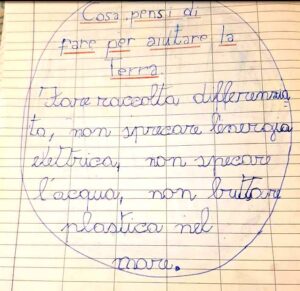 Cosa pensi di
fare per aiutare la
terra
Fare raccolta differennzia
ta, non sprecare l'energia
elettrica, non specare
l'acqua, non buttare
plastica nel
mare.